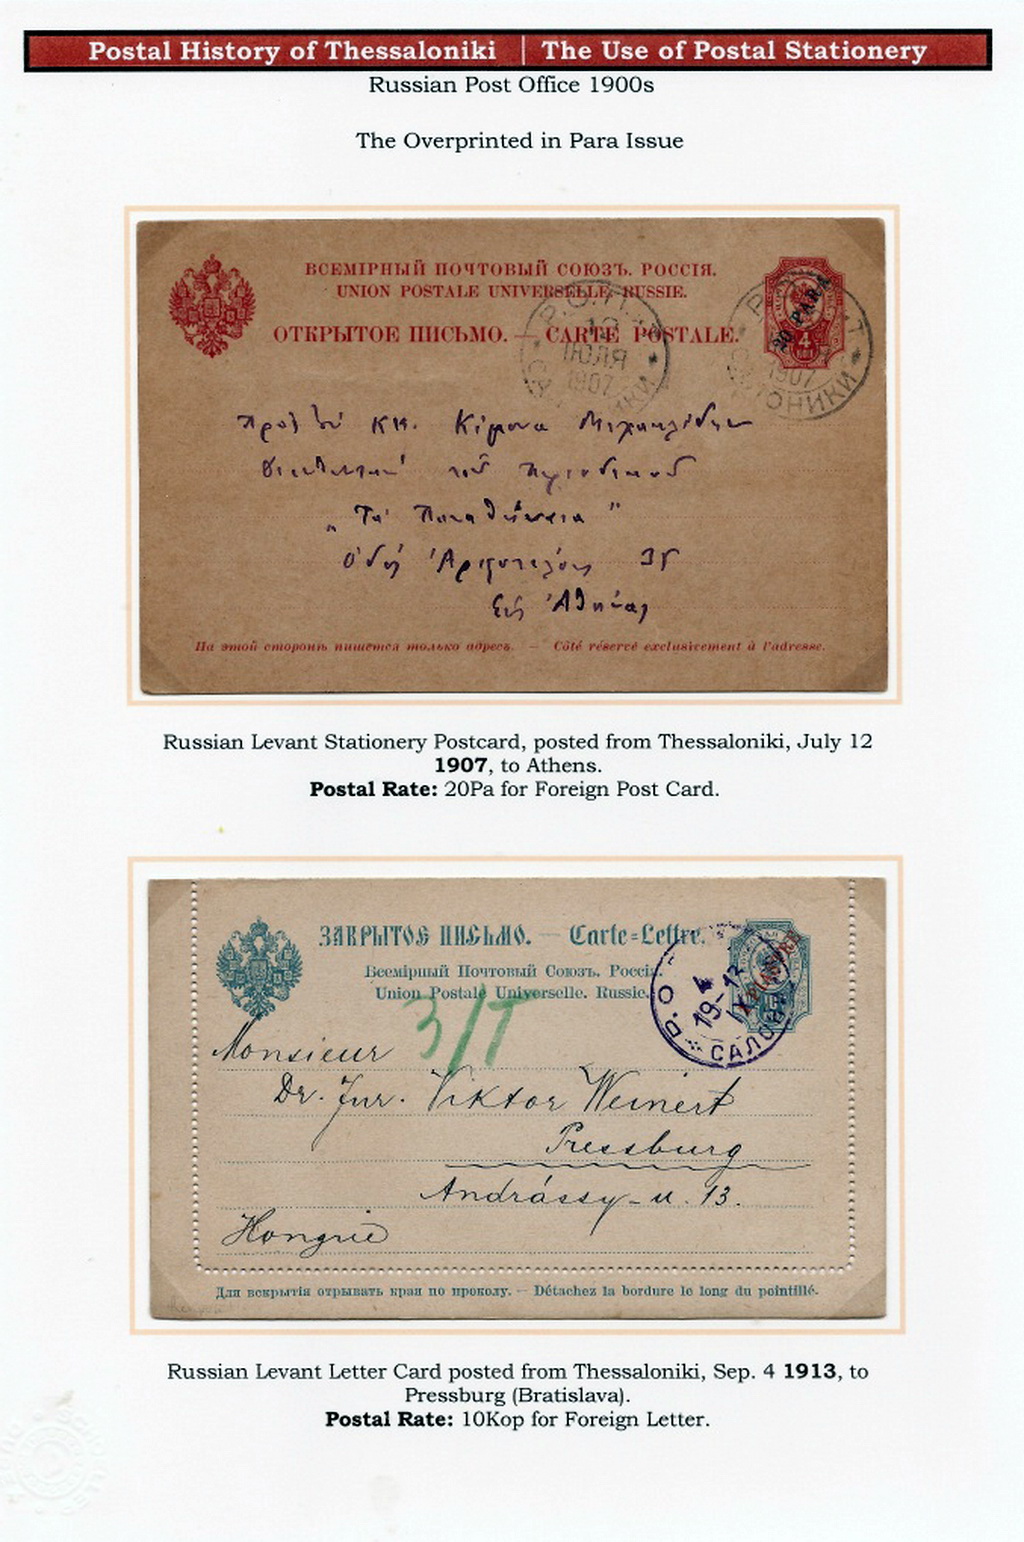 Postal History of Thessaloniki | The Use of Postal Stationery
Russian Post Office 1900s
The Overprinted in Para Issue
ВСЕМІРНЫЙ ПОЧТОВЫЙ СОЮЗЪ. РОССІЯ.
UNION POSTALE UNIVERSELLE. RUSSIE.
ОТКРЫТОЕ ПИСЬМО. — CARTE POSTALE.
20 PARA
4
КОП
12
ІЮЛЯ
1907
1907
Κον. Κίμωνα Μιχαηλίδην
διευθυντήν τοῦ περιοδικοῦ
„Τὰ Παναθήναια"
Ὁδός Ἀριστοτέλους 35
Εἰς Ἀθήνας
На этой сторонѣ пишется только адресъ. — Côté réservé exclusivement à l'adresse.
Russian Levant Stationery Postcard, posted from Thessaloniki, July 12
1907, to Athens.
Postal Rate: 20Pa for Foreign Post Card.
ЗАКРЫТОЕ ПИСЬМО. — Carte=Lettre.
Всемірный Почтовый Союзъ. Россія.
Union Postale Universelle. Russie.
1 PIASTRE
4
19-13
IX
3/T
Monsieur
Dr. Jur. Viktor Weinert
Pressburg
Andrássy-u. 13.
Hongrie
Для вскрытія отрывать края по проколу. — Détachez la bordure le long du pointillé.
Russian Levant Letter Card posted from Thessaloniki, Sep. 4 1913, to
Pressburg (Bratislava).
Postal Rate: 10Kop for Foreign Letter.